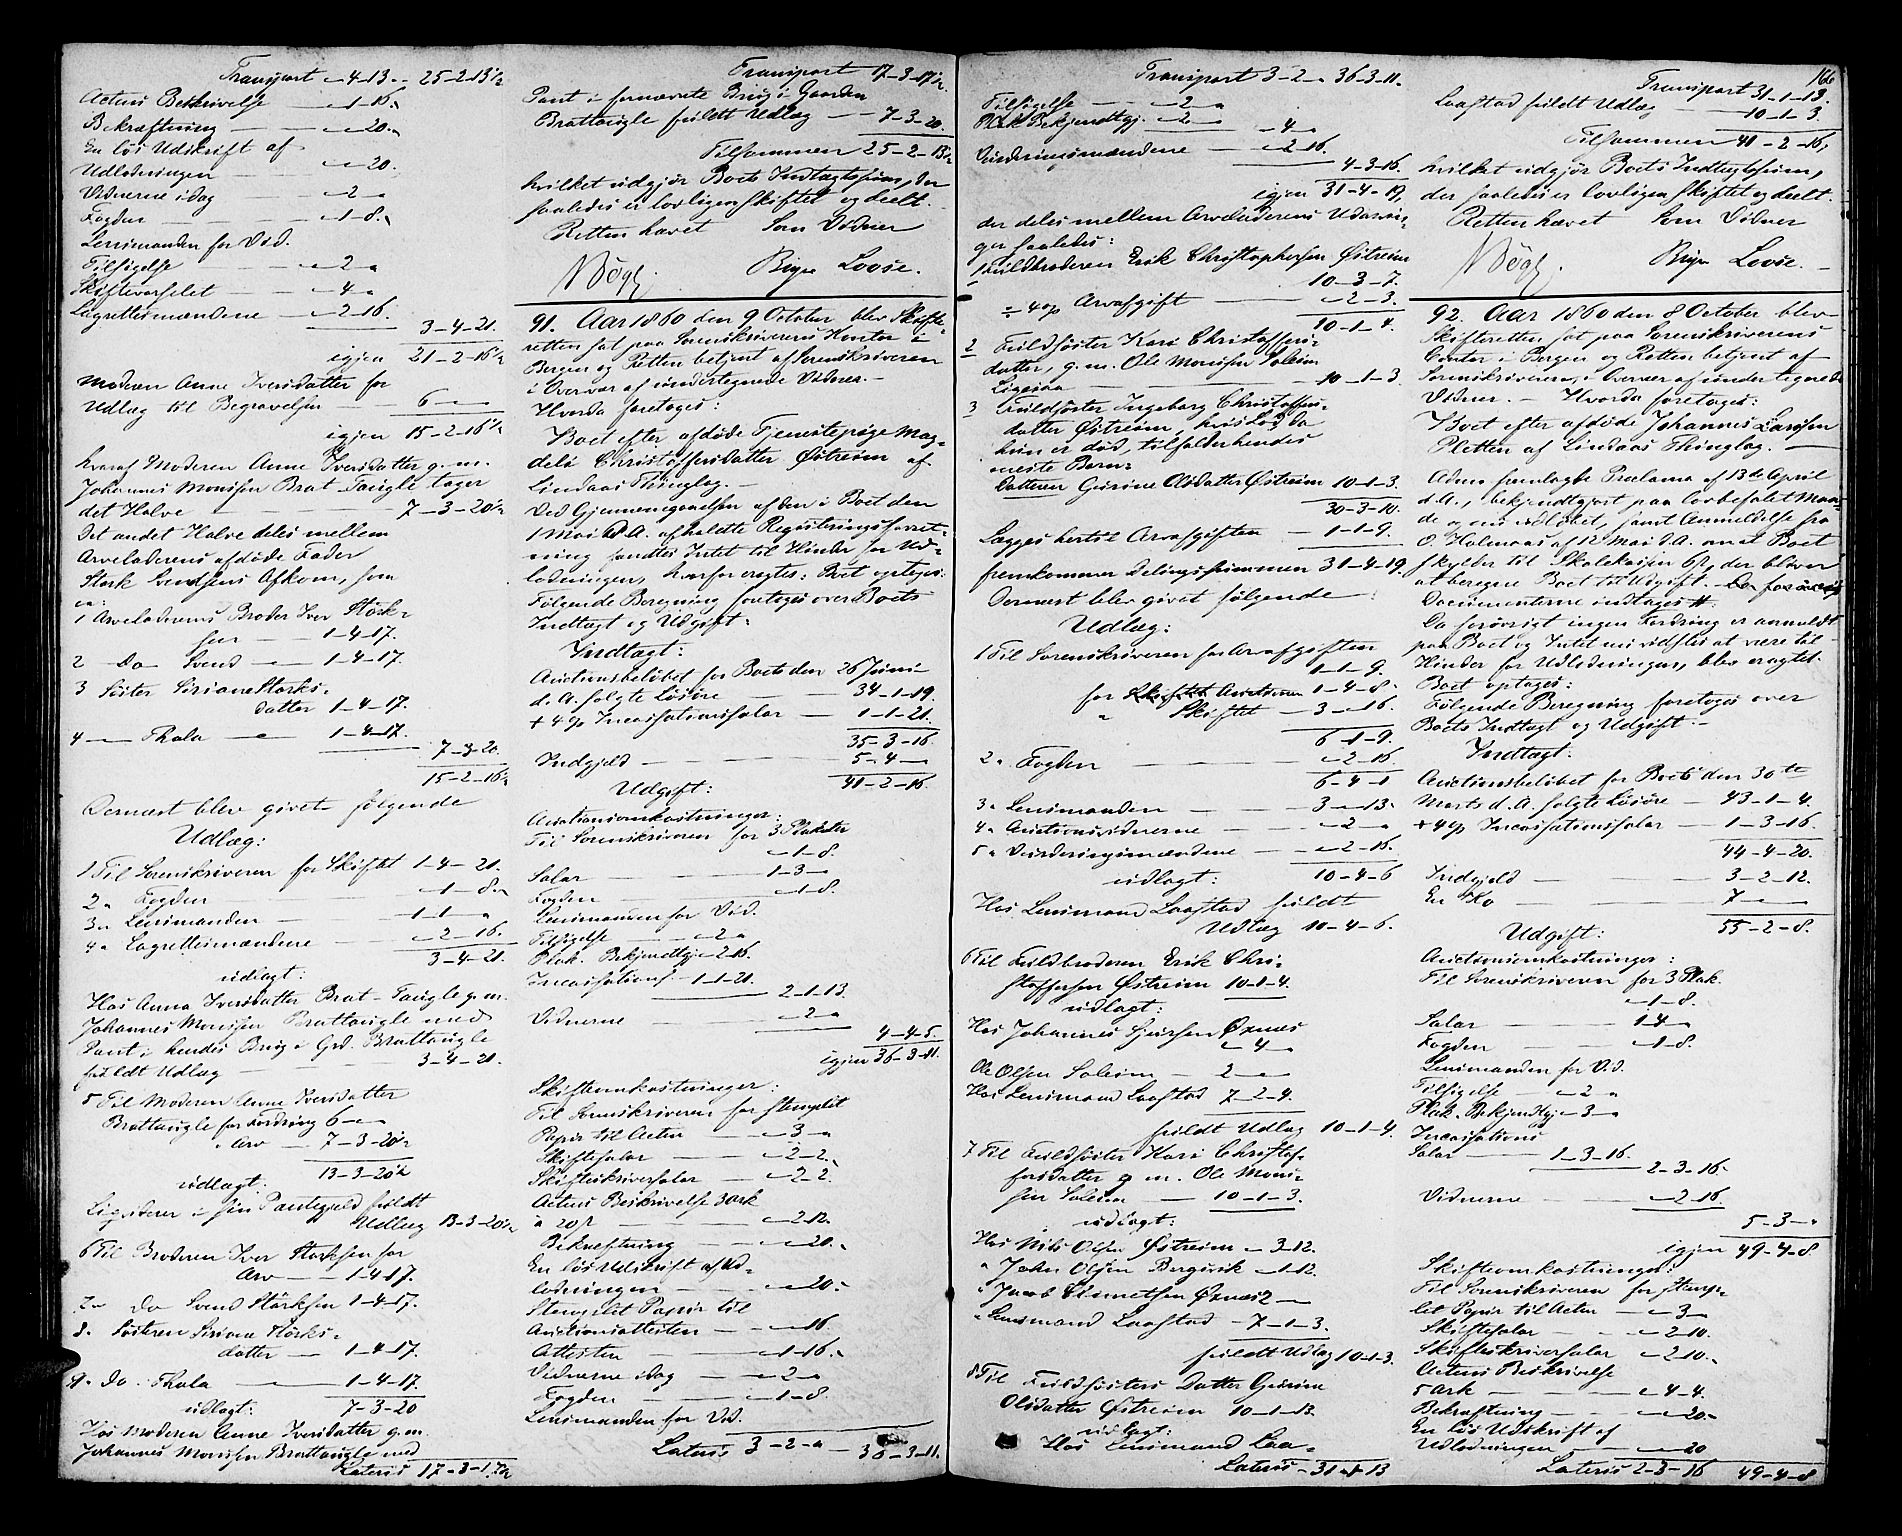 Transport „-4-13 „- 25-2-13½
Actens Beskrivelse — „-1-16„
Bekræftning — — „-„-20„
En løs Udskrift af
Udlodningen — „-„-20.
Vidnerne idag — „-2-„
Fogden — — „-1-8„
Lensmanden for Vid.
Tilsigelse — — „-2-„
Skiftevarselet — „-4-„
Lagrettesmændene — „-2-16.
3-4-21.
igjen 21-2-16½
Moderen Anne Iversdatter for
Udlæg til Begravelsen — 6-„-„
igjen 15-2-16½
hvoraf Moderen Anne Iversdatter g. m.
Johannes Monssen Brat-Taugle tager
det Halve — — — 7-3-20½
Det andet Halve deles mellem
Arveladerens afdøde Fader
Stork Svendsens Afkom, som
er:
1 Arveladerens Broder Iver Stork-
sen — 1-4-17.
2 Do Svend — 1-4-17.
3 Søster Siriane Storks-
datter 1-4-17.
4 — Thala — 1-4-17.
7-3-20.
15-2-16½
Dernæst blev givet følgende
Udlæg:
1 Til Sorenskriveren for Skiftet 1-4-21.
2„ Fogden — — „-1-8„
3„ Lensmanden — — 1-1-„
4„ Lagrettesmændene — „-2-16.
3-4-21.
udlagt:
Hos Anna Iversdatter Brat-Taugle g. m.
Johannes Monssen Brattaugle med
Pant i hendes Brug i Grd. Brattaugle
fuldt Udlæg — — 3-4-21.
5 Til Moderen Anne Iversdatter
Brattaugle for Fordring 6-„-„
„ Arv — 7-3-20½
13-3-20½
udlagt:
Ligviderer i sin Pantegjeld fuldt
Udlæg 13-3-20½
6 Til Broderen Iver Storksen for
Arv — 1-4-17.
7„ Do Svend Storksen 1-4-17.
8. Søsteren Siriane Storks-
datter — 1-4-17.
9. Do. Thala — 1-4-17.
udlagt: 7-3-20
Hos Moderen Anne Iversdatter g. m.
Johannes Monssen Brattaugle med
Lateris 17-3-17½
Transport 17-3-17½
Pant i fornævnte Brug i Gaarden
Brattaugle fuldt Udlæg — 7-3-20.
Tilsammen 25-2-13½
hvilket udgjør Boets Indtægtssum, der
saaledes er lovligen skiftet og deelt.
Retten hævet Som Vidner
Brynr Loose.
91. Aar 1860 den 9 October blev Skifte-
retten sat paa Sorenskriverens Kontor i
Bergen og Retten betjent af Sorenskriveren
i Overvær af undertegnede Vidner. —
Hvorda foretoges:
Boet efter afdøde Tjenestepige Mag-
dele Christoffersdatter Østreim af
Lindaas Thinglag. —
Ved Gjennemgaaelsen af den i Boet den
1 Mai d. A. afholdte Registreringsforret-
ning fandtes Intet til Hinder for Ud-
lodningen, hvorfor eragtes: Boet optages.
Følgende Beregning foretoges over Boets
Indtægt og Udgift:
Indtægt:
Auctionsbeløbet for Boets den 26 Juni
d. A. solgte Løsøre — — 34-1-19.
+ 4 op Incassationssalar — 1-1-21.
35-3-16.
Indgjeld — — — 5-4-„
Udgift: 41-2-16.
Auctionsomkostninger:
Til Sorenskriveren for 3 Plakater
„-1-8.
Salar — — — 1-3-„
Fogden — — — „-1-8.
Lensmanden for Vid.
Tilsigelse — „-2-„
Plak. Bekjendtgj. „-2-16.
Incassations — 1-1-21.
2-1-13.
Vidnerne — — „-2-„
4-4-5.
igjen 36-3-11.
Skifteomkostninger:
Til Sorenskriveren for stemplet
Papir til Acten — „-3-„
Skiftesalar — — „-2-2.
Skifteskriversalar — „-2-2.
Actens Beskrivelse 3 ark
a 20 s — — „-2-12.
Bekræftning — — „-„-20„
En løs Udskrift af Ud-
lodningen — — „-„-20„
Stemplet Papir til
Auctionsattesten — „-„-16.
Attesten — — „-1-16„
Vidnerne idag — „-2-„
Fogden — — „-1-8.
Lensmanden for Vid.
Lateris 3-2-„ — 36-3-11.
Transport 3-2-„ 36-3-11.
Tilsigelse — — „-2-„
Plak. Bekjendtgj. „-2-„
„-4-„
Vurderingsmændene — „-2-16.
4-3-16.
igjen 31-4-19,
der deles mellem Arveladerens Udarvin-
ger saaledes:
1 Fuldbroderen Erik Christophersen Østreim
10-3-7.
÷ 4 op Arvafgift — „-2-3.
10-1-4.
2 Fuldsøster Kari Christoffers-
datter, g. m. Ole Monssen Soleim
Ligesaa — — — 10-1-3.
3 Fuldsøster Ingeborg Christoffers-
datter Østreim, hvis Lod da
hun er død, tilfalder hendes
eneste Barn:
Datteren Gurine Olsdatter Østreim 10-1-3.
30-3-10.
Lægges hertil Arvafgiften — 1-1-9.
fremkommer Delingssummen 31-4-19.
Dernæst blev givet følgende
Udlæg:
1 Til Sorenskriveren for Arvafgiften
1-1-9.
for Auctionen 1-4-8.
„ Skiftet — 3-„-16.
6-1-9.
2„ Fogden — — „-2-16
6-4-1
3„ Lensmanden — — 3-„-13.
4„ Auctionsvidnerne — „-2-„
5„ Vurderingsmændene — „-2-16.
udlagt: 10-4-6
Hos Lensmand Laastad fuldt
Udlæg 10-4-6.
6 Til Fuldbroderen Erik Chri-
stoffersen Østreim 10-1-4.
udlagt:
Hos Johannes Sjursen Øxnæs
„-4-„
Ole Olsen Soleim — 2-„-„
Hos Lensmand Laastad 7-2-4.
fuldt Udlæg 10-1-4.
7 Til Fuldsøster Kari Christof-
fersdatter g. m. Ole Mons-
sen Soleim — 10-1-3.
udlagt:
Hos Nils Olsen Østreim „-3-12.
„ John Olsen Bergsvik „-1-12.
„ Jacob Øxnæs 2-„-„
„ Lensmand Laastad — 7-1-3.
fuldt Udlæg 10-1-3.
8 Til Fuldsøsters Datter Gurine
Olsdatter Østreim 10-1-13.
udlagt:
Hos Lensmand Laa-
Lateris 31-1-13
166
Transport 31-1-13.
Laastad fuldt Udlæg — 10-1-3.
Tilsammen 41-2-16,
hvilket udgjør Boets Indtægtssum,
der saaledes er lovligen skiftet og deelt.
Retten hævet Som Vidner
Brynr Loose. —
92. Aar 1860 den 8 October blev
Skifteretten sat paa Sorenskriverens
Contor i Bergen og Retten betjent af
Sorenskriveren, i Overvær af undertegnede
Vidner. — Hvorda foretoges:
Boet efter afdøde Johannes Larssen
Pletten af Lindaas Thinglag. —
Adm. fremlagte Proclama af 13de April
d. A., bekjendtgjort paa lovbefalet Maa-
de og nu udløbet, samt Anmeldelse fra
O. Holmaas af 12 Mai d. A. om at Boet
skylder til Skolekassen 61 s, der bliver
at beregne Boet til Udgift.
Documenterne indtages #.
Da forøvrigt ingen Fordring er anmeldt
paa Boet og Intet nu vidstes at være til
Hinder for Udlodningen, blev eragtet:
Boet optages:
Følgende Beregning foretoges over
Boets Indtægt og Udgift. —
Indtægt:
Auctionsbeløbet for Boets den 30te
Marts d. A. solgte Løsøre — 43-1-4.
+ 4 op Incassationssalar — 1-3-16.
44-4-20.
Indgjeld — — — 3-2-12.
En Ko — — — 7-„-„
Udgift: 55-2-8.
Auctionsomkostninger:
Til Sorenskriveren for 3 Plak.
„-1-8.
Salar — — 1-4-„
Fogden — — „-1-8.
Lensmanden for Vid.
Tilsigelse — „-2-„
Plak. Bekjendtgj. „-3-„
Incassations
Salar — 1-3-16.
2-3-16.
Vidnerne — — „-2-16.
5-3-„
igjen 49-4-8.
Skifteomkostninger:
Til Sorenskriveren for stemp-
let Papir til Acten — „-3-„
Skiftesalar — — „-2-10.
Skifteskriversalar „-2-10„
Actens Beskrivelse
5 Ark — — „-4-4.
Bekræftning — — „-„-20„
En løs Udskrift af
Udlodningen — „-„-20
Lateris 2-3-16 49-4-8